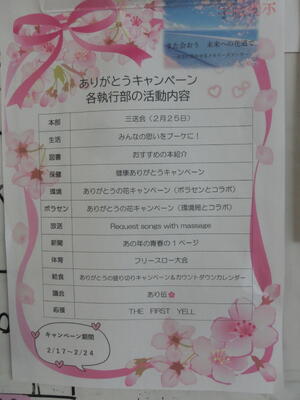 また会おう 未来への花道で
ありがとうキャンペーン
各執行部の活動内容
本部 三送会(2月25日)
生活 みんなの思いをブーケに!
図書 おすすめの本紹介
保健 健康ありがとうキャンペーン
環境 ありがとうの花キャンペーン(ボラセンとコラボ)
ボラセン ありがとうの花キャンペーン(環境局とコラボ)
放送 Request songs with massage
新聞 あの年の青春の1ページ
体育 フリースロー大会
給食 ありがとうの盛り切りキャンペーン&カウントダウンカレンダー
議会 あり伝🌸
応援 THE FIRST YELL
キャンペーン期間
2/17~2/24